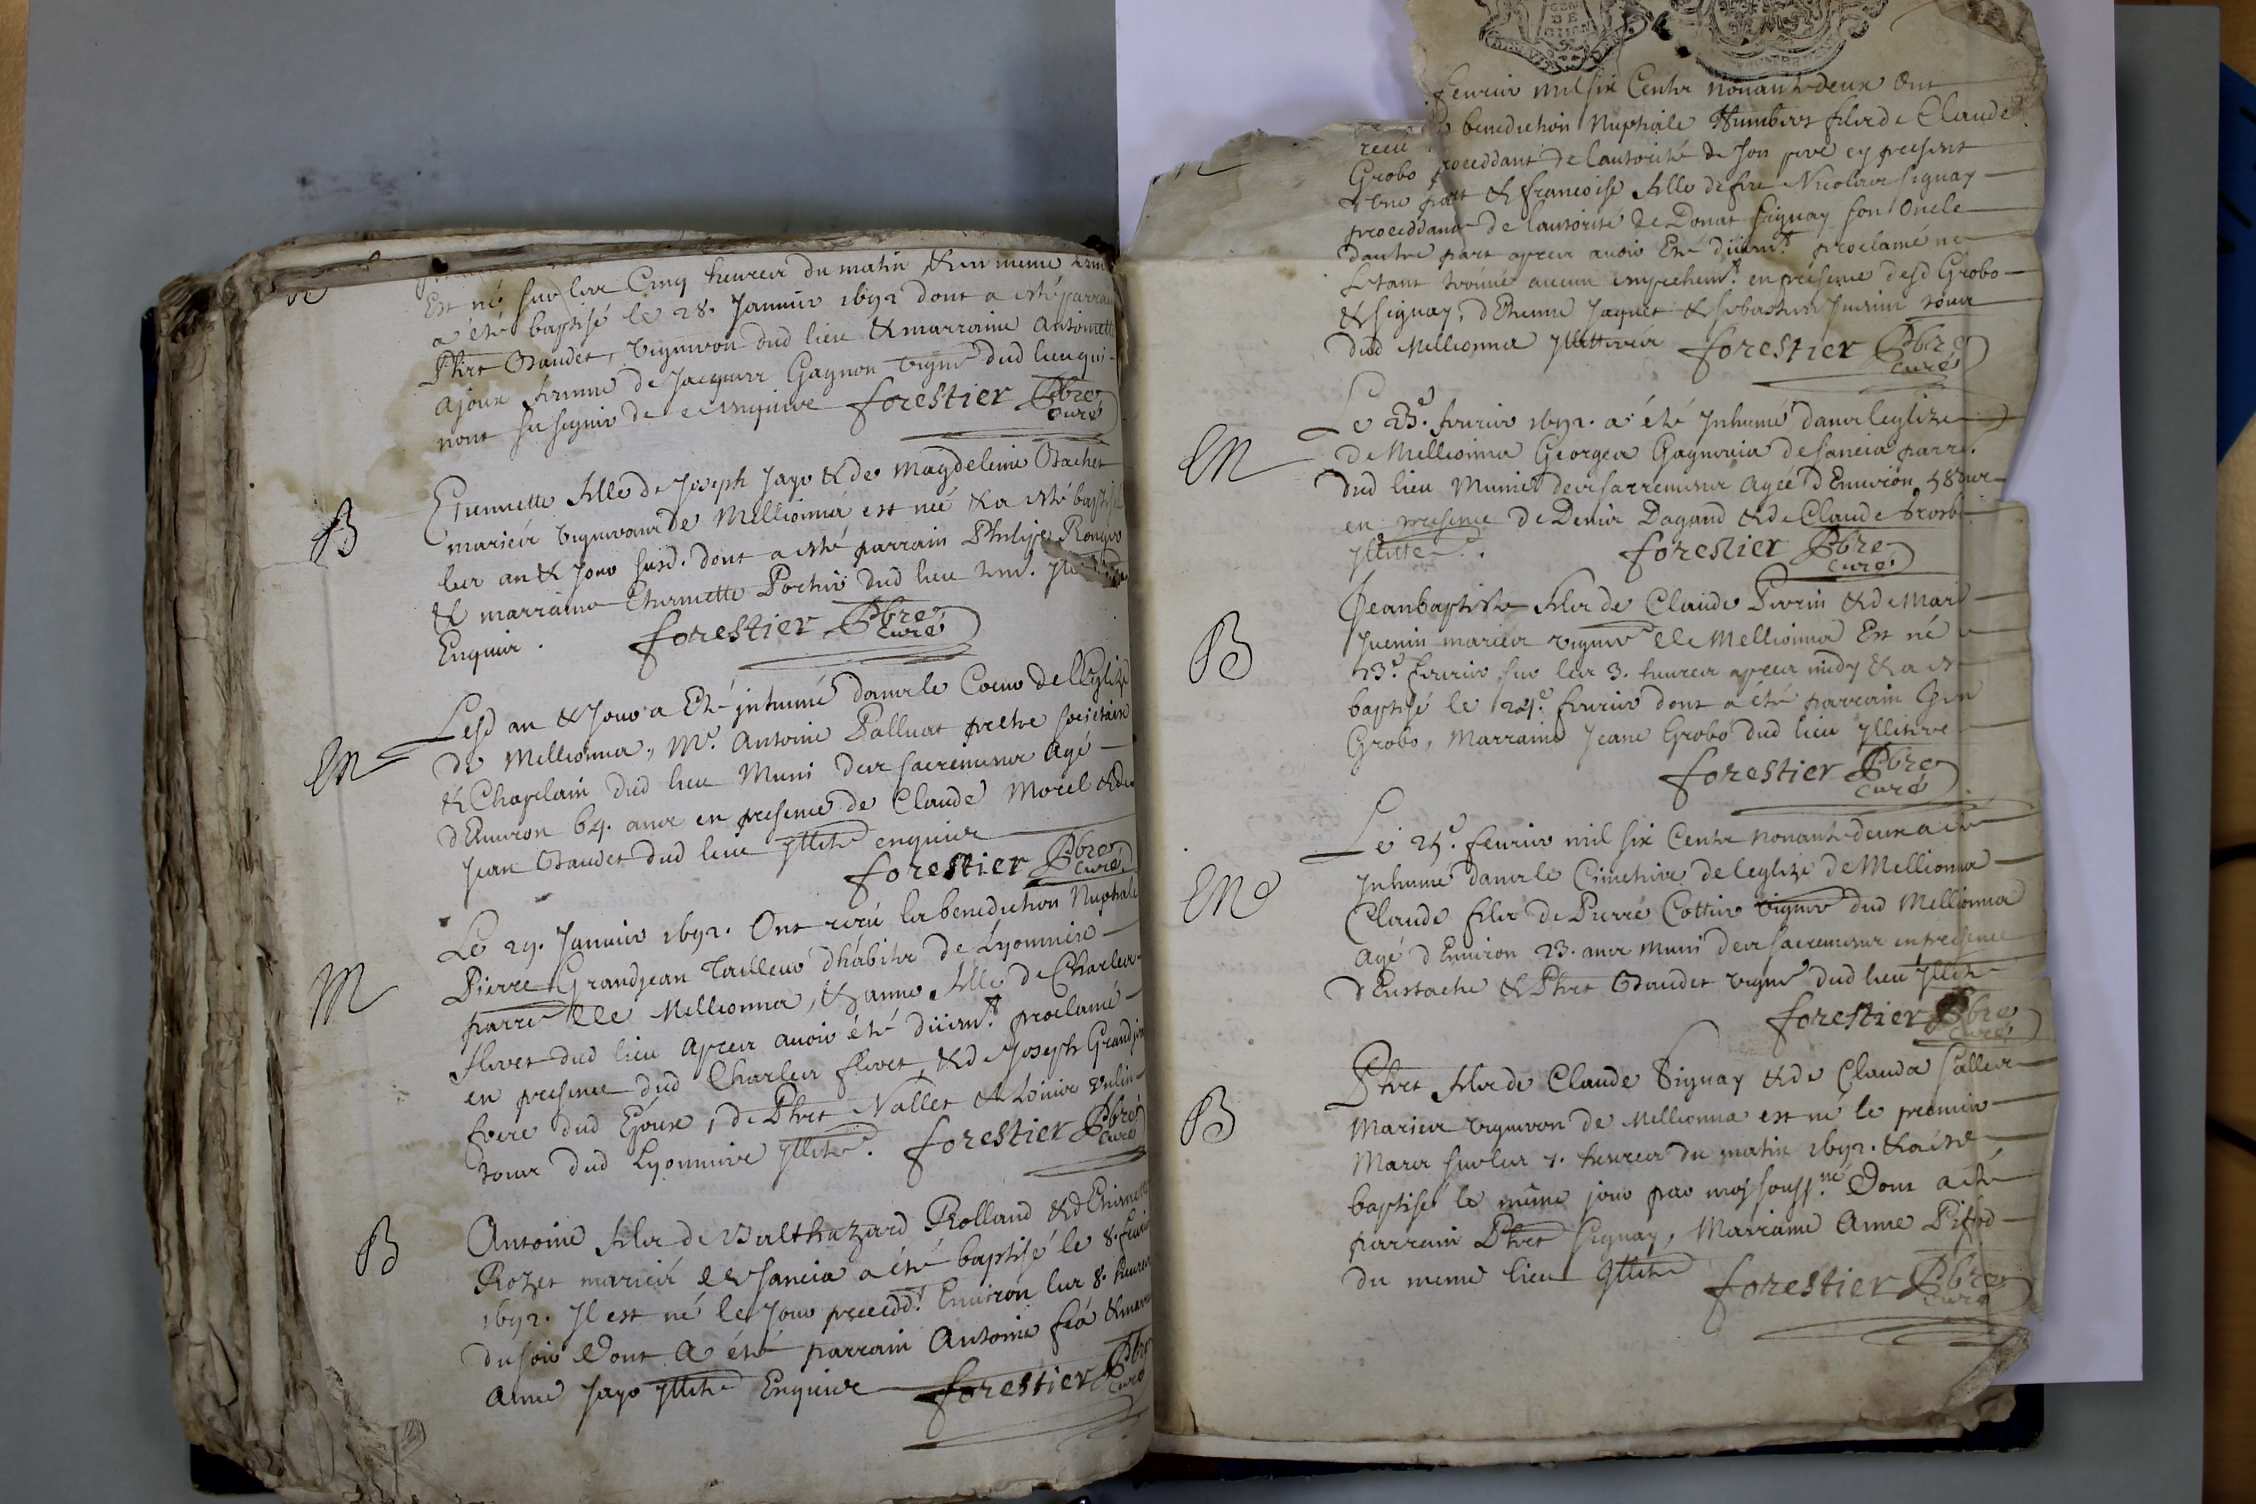 Est né sur les Cinq heures du matin & en meme
a été baptisé le 28. Janvier 1692 dont a esté parrain
Phrt Baudet, vigneron dud lieu & marraine Antoinette
Ajoux femme de Jacques Gagnon vigner dud lieu qui
nont su signer de ce enquire forestier Pbre
Curé
B
Etiennette fille de Joseph Jayo & de Magdeleine Bachet
mariéz vignerons de Mellionna est née & a esté baptisé
les an & Jour susd. dont a esté parrain Philipe
& marraine Etiennette Portier dud lieu
Enquis. forestier Pbre
Curé
M
Lesd an & Jour a Eté jnhumé dans le Coeur de lEglize
de Mellionna, Mr. Antoine Palluat prestre societaire
& Chapelain dud lieu Muni des sacremens Agé
dEnviron 64. ans en presence de Claude Morel & de
Jean Baudet dud lieu jllité enquis
forestier Pbre
Curé
M
Le 29. Janvier 1692. Ont receu la benediction Nuptiale
Pierre Grandjean Tailleur dhabits de Lyonniere
parre de Mellionna, & anne fille de Charles
flovet dud lieu Apres avoir été düemt proclamé
en presence dud Charles flovet, & de Joseph Grandjean
frere dud Epoux, de Phrt Nallet & Loüis
tous dud Lyonniere jllité. forestier Pbre
Curé
B
Antoine filz de Balthazard Rolland & d'Etiennette
Rozet mariéz de sancia a été baptisé le 8. fevrier
1692. Jl est né le Jour precedt Environ les 8. heures
du soir Dont A été parrain Antoine feó & marraine
Anne Jayo jllité Enquis forestier Pbre
Curé
fevrier mil six Cents nonante deux Ont
receu benediction Nuptiale Humbert filz de Claude
Grobo proceddant de lautorité de son pere cy present
dune part & francoise fille de feu Nicolas signay
proceddant de lautorité de Donat signay son Oncle
dautre part apres avoir Eté düemt proclamé ne
sétant trouvé aucun empechemt en presence desd Grobo
& signay, dEtienne Jaquet & sebastien Juenin tous
dud Mellionna jllitterés forestier Pbre
Curé
M
Le 23e. fevrier 1692. a été Jnhumé dans leglize
de Mellionna Georgea Gagneria de sancia parre.
dud lieu Munie des sacremens Agée dEnviron 58 ans
en presence de Denis Dagand & de Claude
jllité. forestier Pbre
Curé
B
Jeanbaptiste filz de Claude Perrin & de Marie
Juenin mariez vigner de Mellionna Est né
23e. fevrier sur les 3. heures apres midy & a été
baptisé le 24e. fevrier dont a été parrain Jean
Grobo, Marraine Jeane Grobo dud lieu jllitere
forestier Pbre
Curé
M
Le 25e. fevrier mil six Cents nonante deux a été
Jnhumé dans le Cimetiere de leglize de Mellionna
Claude filz de Pierre Cottier vigner dud Mellionna
Agé dEnviron 23. ans Muni des sacremens en presence
dEustache & Phrt Baudet vigner dud lieu jllité
forestier Pbre
Curé
B
Phrt filz de Claude Signay & de Clauda Sallez
Mariez vigneron de Mellionna est né le premier
Mars sur les 7. heures du matin 1692. & a été
baptisé le même jour par moy soussné. Dont a été
parrain Phrt Signay, Marraine Anne
du meme lieu jllité forestier Pbre
Curé